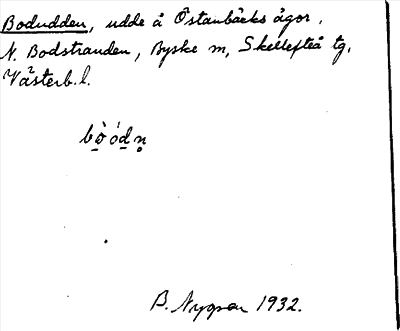 Bodudden, udde å Östanbäcks ägor,
N. Bodstranden, Byske sn, Skellefteå tg,
Västerb. l.
B. Nygren 1932.